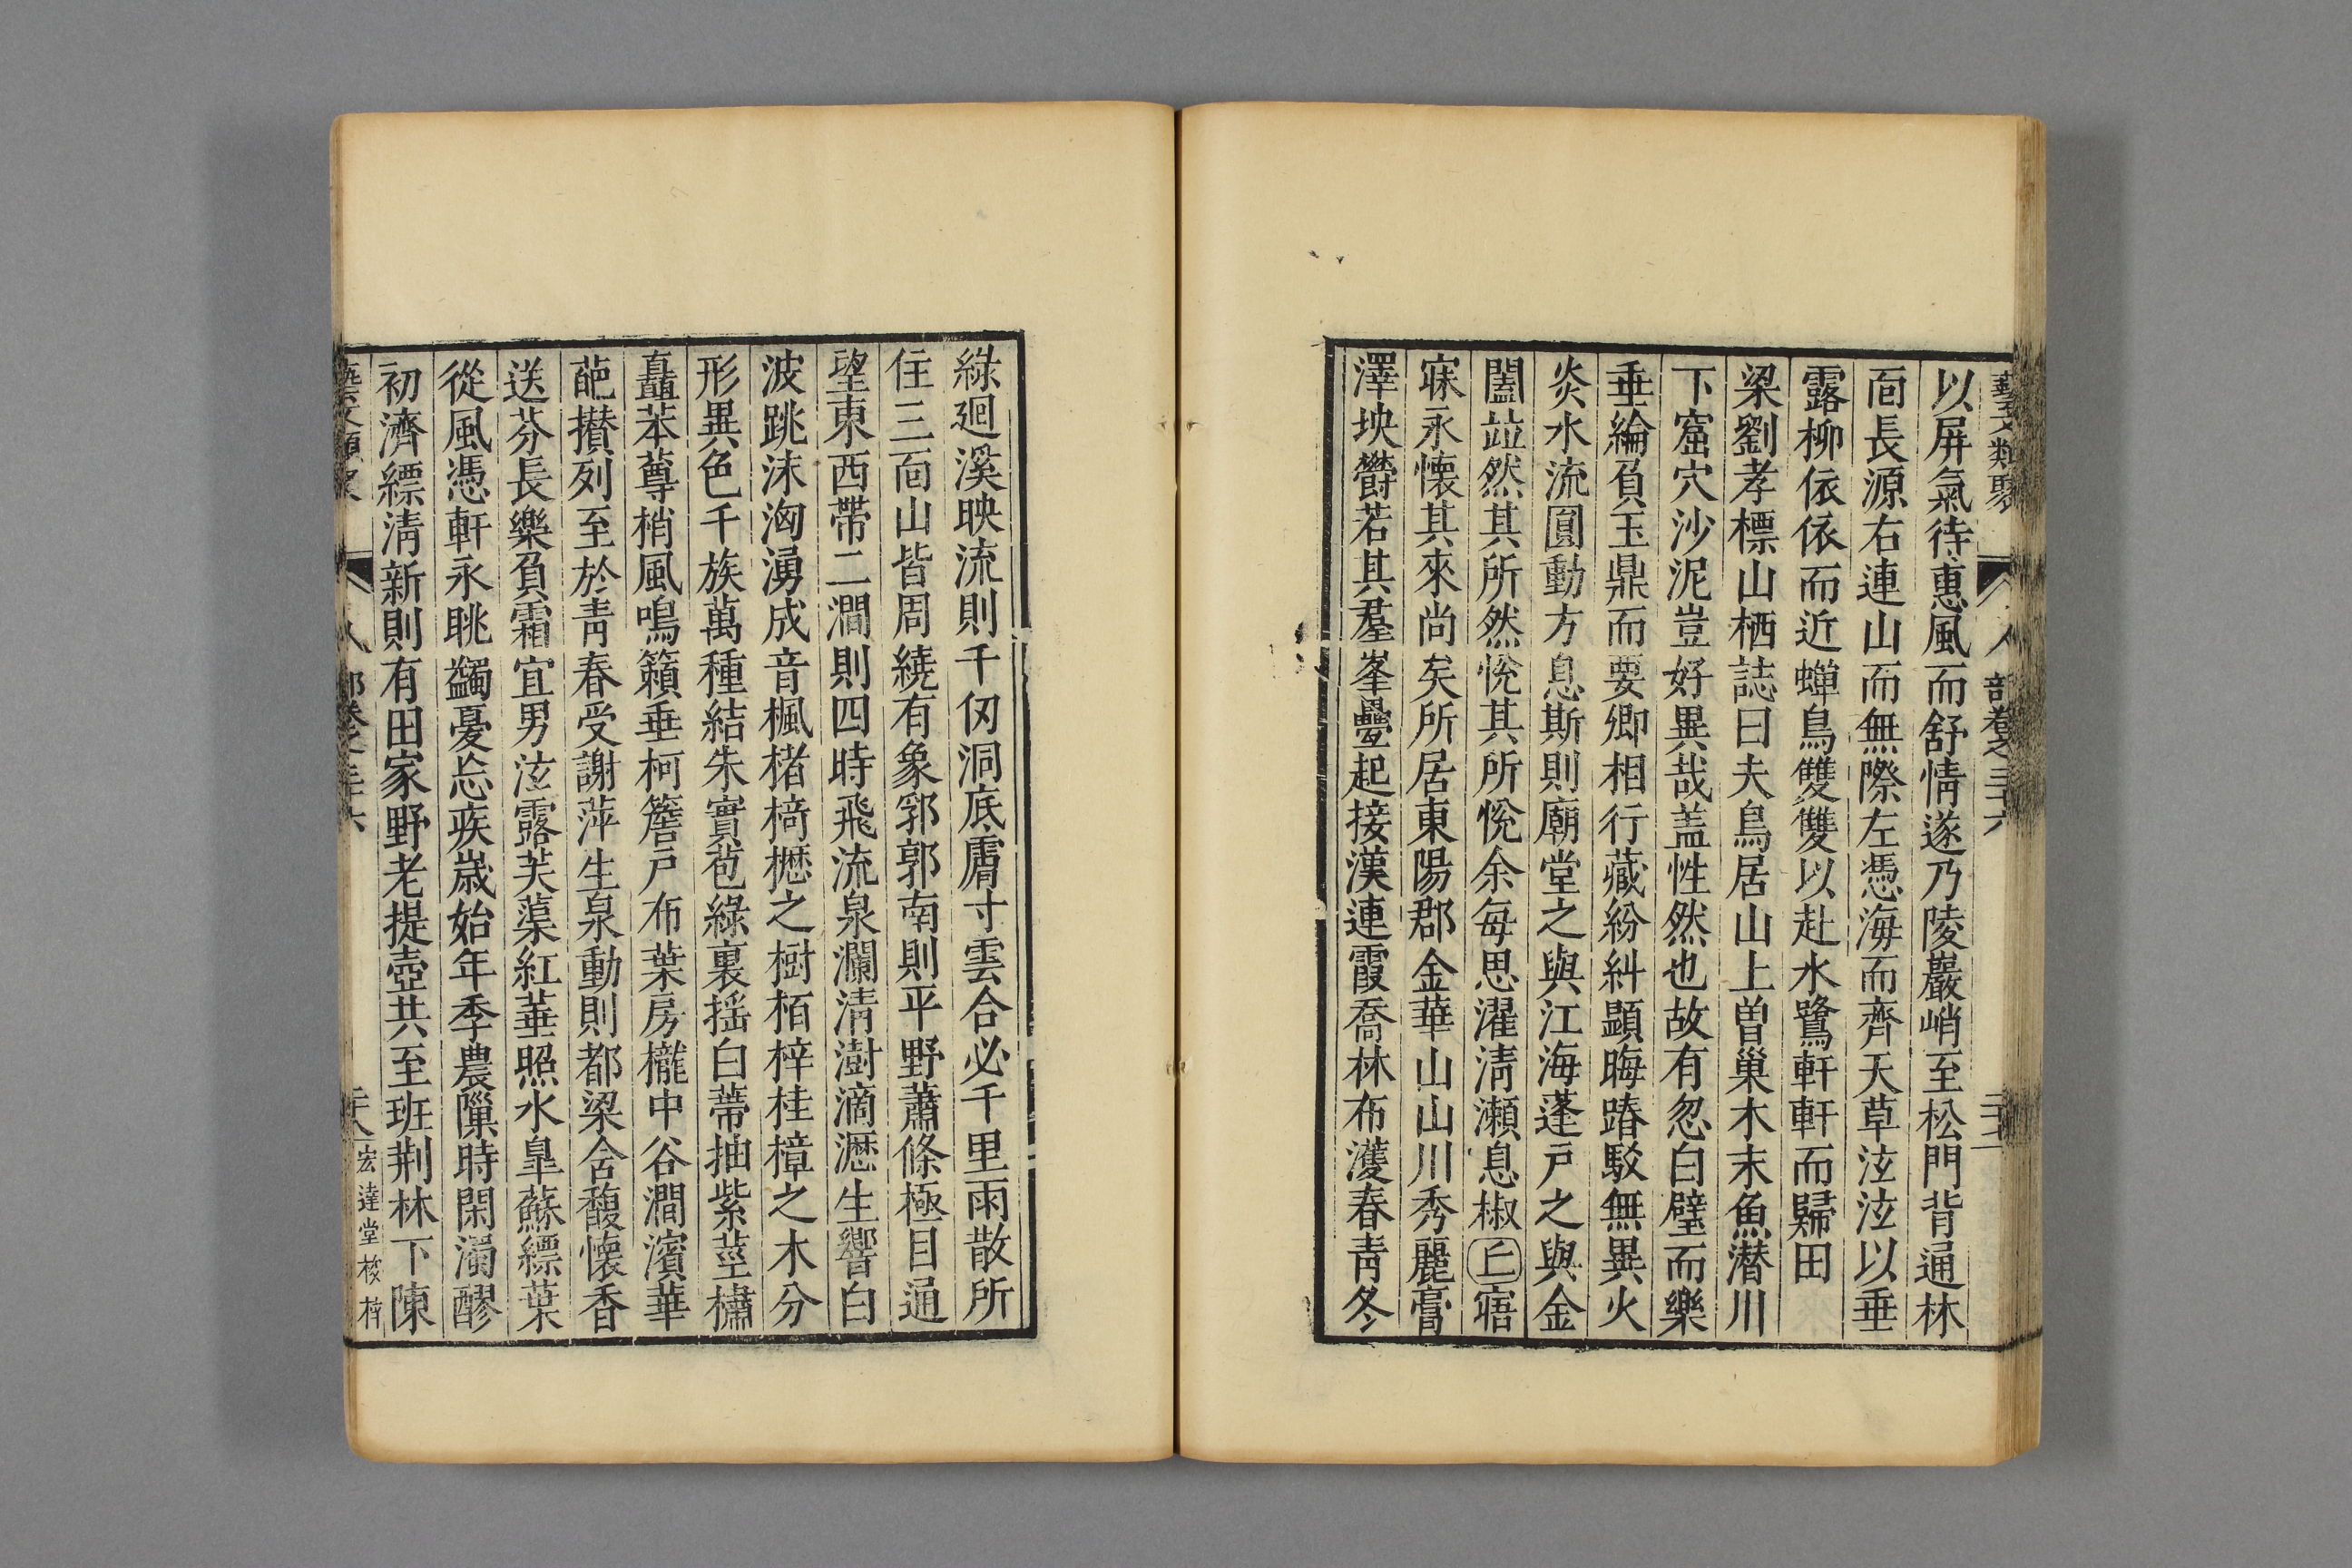 藝文類聚 人部卷之三十六
以屏氣待惠風而舒情遂乃陵巖峭至松門背通林
面長源右連山而無際左憑海而齊天草泫泫以垂
露柳依依而近蟬鳥雙雙以赴水鷺軒軒而歸田
梁劉孝標山栖誌曰夫鳥居山上曾巢木末魚潛川
下窟穴沙泥豈好異哉盖性然也故有忽白璧而樂
垂綸負玉鼎而要卿相行藏紛糾顯晦踳駁無異火
炎水流圓動方息斯則廟堂之與江海蓬戶之與金
闈竝然其所然悅其所悅余每思濯清瀨息椒丘寤
寐永懷其來尚矣所居東陽郡金華山山川秀麗膏
澤坱欝若其羣峯疊起接漢連霞喬林布濩春青冬
綠廻溪映流則千仞洞底膚寸雲合必千里雨散所
住三面山皆周繞有象郛郭南則平野蕭條極目通
望東西帶二澗則四時飛流泉瀾清澍滴瀝生響白
波跳沫洶湧成音楓櫧椅櫪之樹栢梓桂樟之木分
形異色千族萬種結朱實苞綠裏搖白蔕抽紫莖橚
矗苯䔿梢風鳴籟垂柯簷戶布葉房櫳中谷澗濱華
葩攢列至於青春受謝萍生泉動則都梁含馥懷香
送芬長樂負霜宜男泫露芙蕖紅華照水臯蘇縹葉
從風憑軒永眺蠲憂忘疾歲始年季農隟時閑濁醪
初濟縹清新則有田家野老提壺共至班荆林下陳
藝文類聚 人部卷之三十六 宏達堂校梓